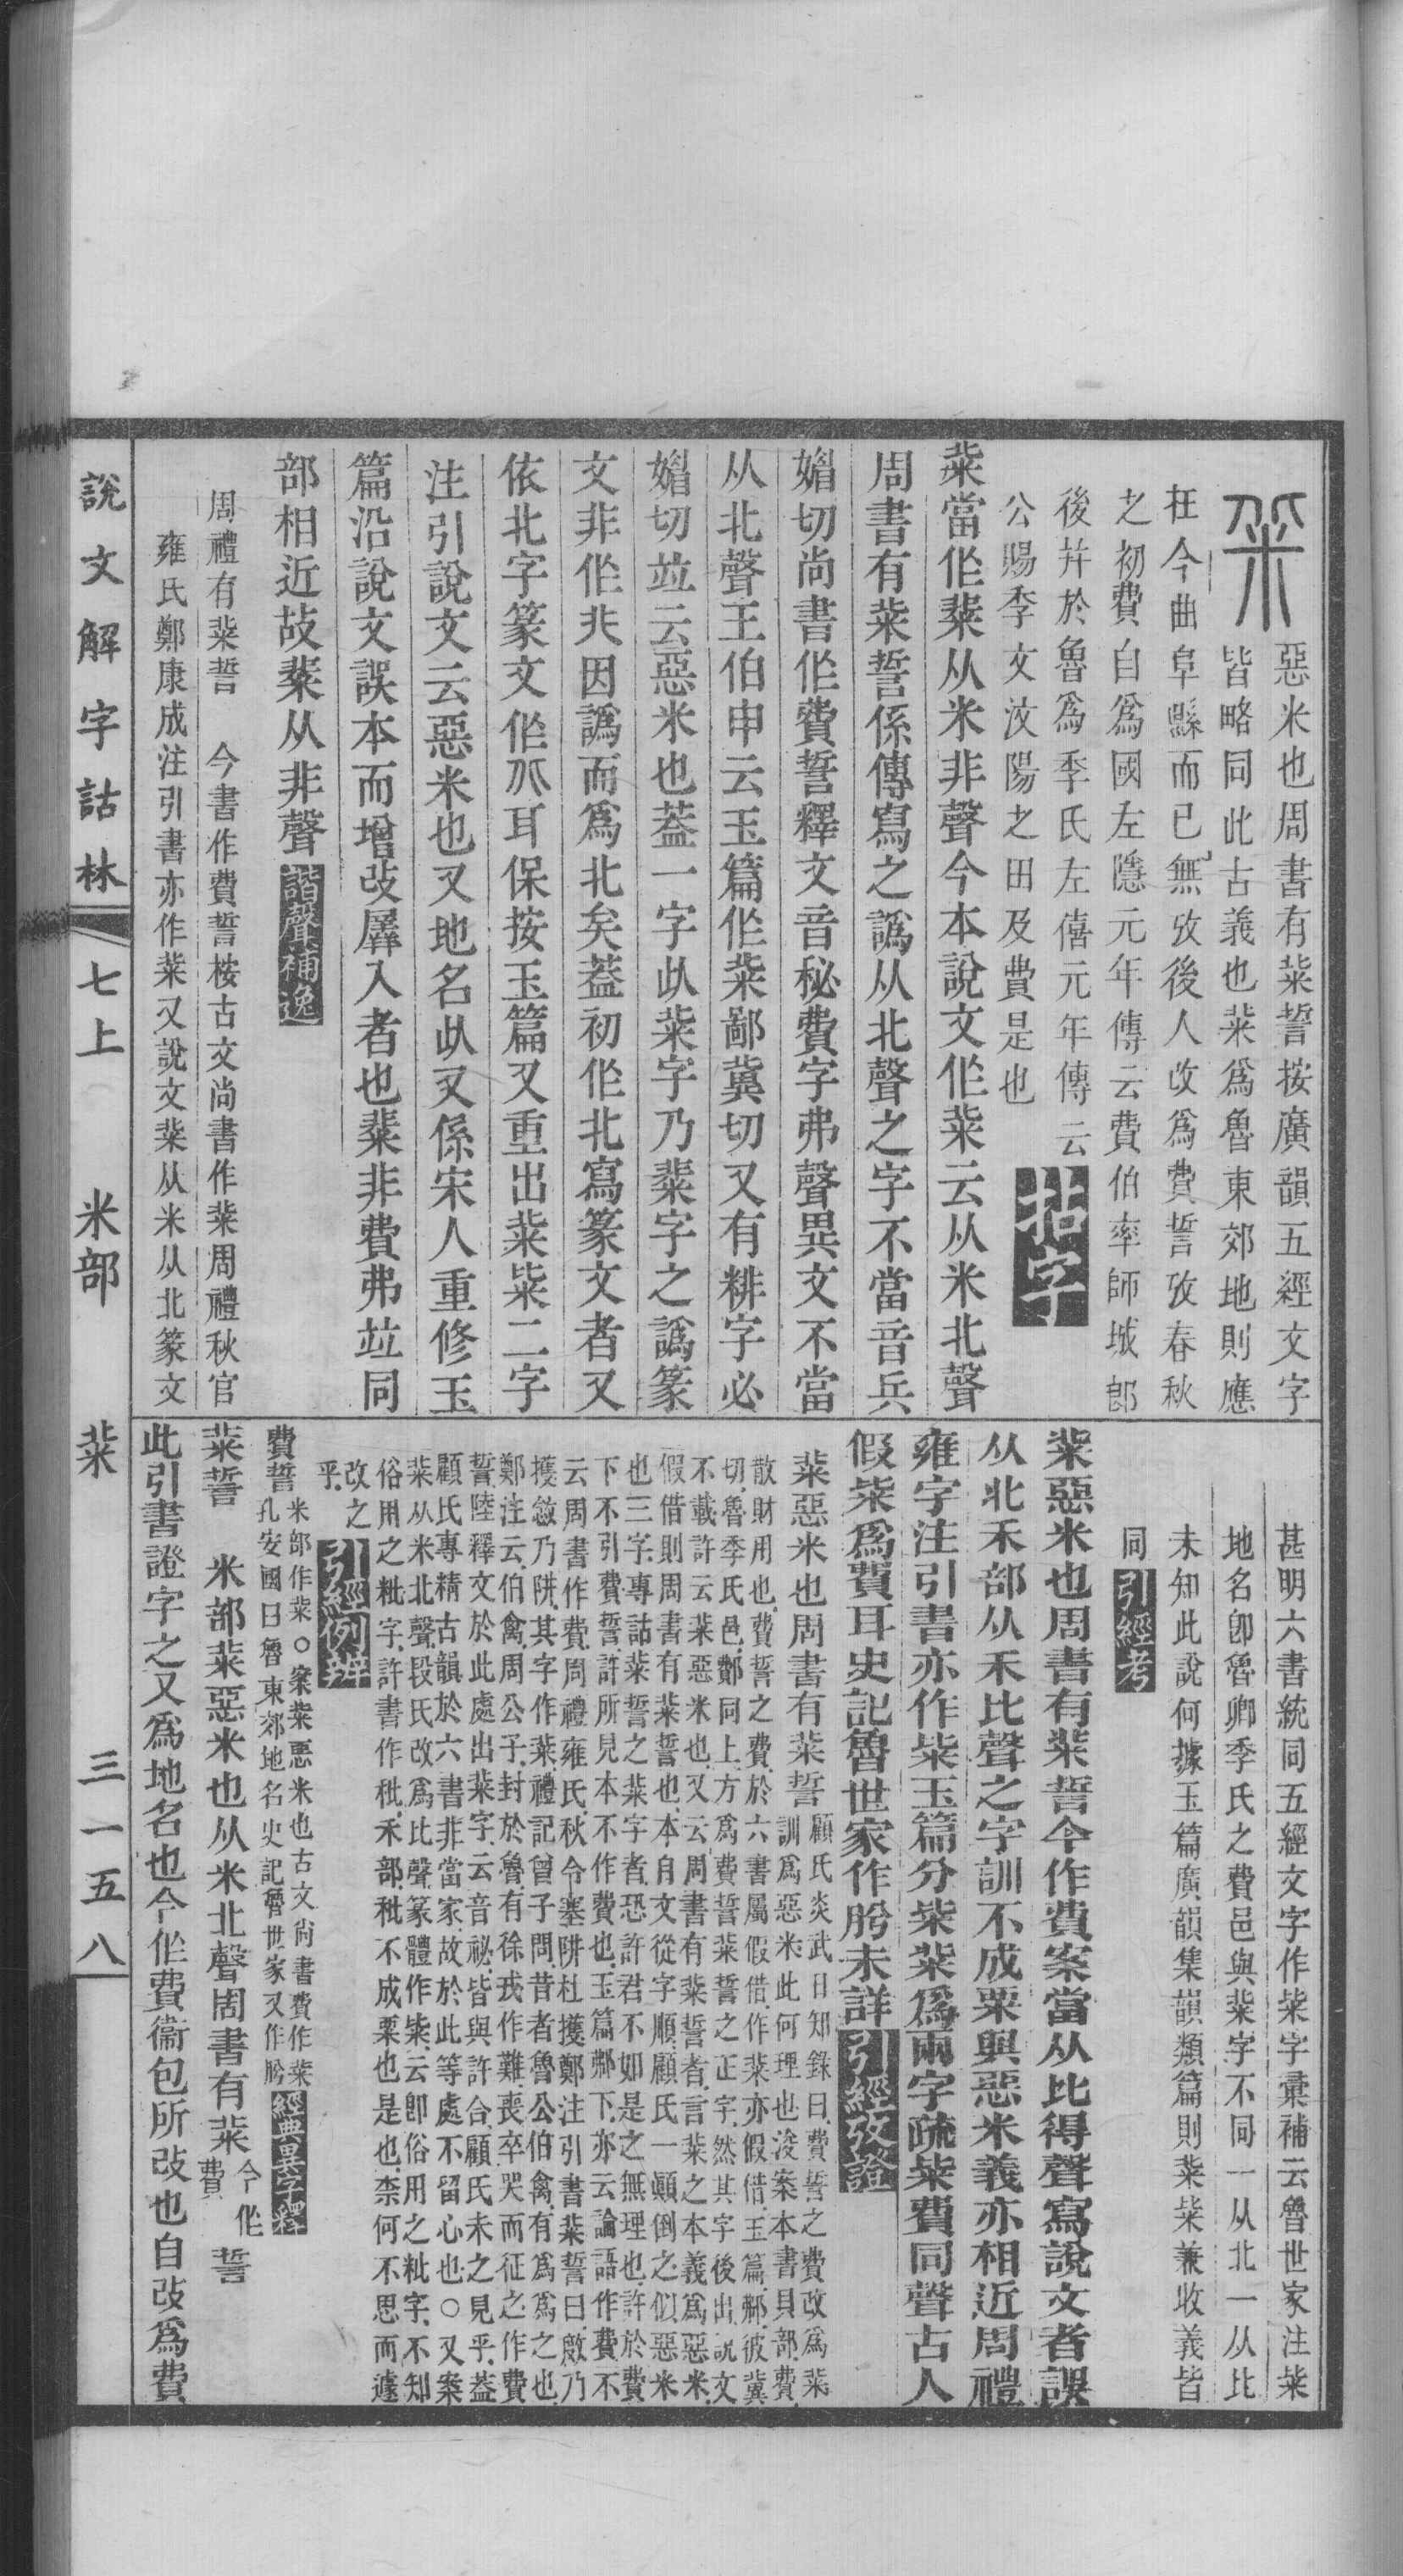 惡米也周書有粊誓按廣韻五經文字
皆略同此古義也粊爲魯東郊地則應
在今曲阜縣而已無攷後人改爲費誓攷春秋
之初費自爲國左隱元年傳云費伯率師城郎
後幷於魯爲季氏左僖元年傳云
公賜季友汶陽之田及費是也
拈字
粊當作䉬从米非聲今本說文作粊云从米北聲
周書有粊誓係傳寫之譌从北聲之字不當音兵
媚切尚書作費誓釋文音秘費字弗聲異文不當
从北聲王伯申云玉篇作粊鄙冀切又有䊧字必
媚切並云惡米也葢一字㠯粊字乃䉬字之譌篆
文非作兆因譌而爲北矣葢初作北寫篆文者又
依北字篆文作耳保按玉篇又重出粊粊二字
注引說文云惡米也又地名㠯又係宋人重修玉
篇沿說文誤本而增改羼入者也䉬非費弗並同
部相近故䉬从非聲
諧聲補逸
周禮有粊誓 今書作費誓桉古文尚書作粊周禮秋官
雍氏鄭康成注引書亦作粊又說文粊从米从北篆文
甚明六書統同五經文字作粊字彙補云魯世家注粊
地名卽魯卿季氏之費邑與粊字不同一从北一从比
未知此說何據玉篇廣韻集韻類篇則粊粊兼收義皆
同
引經考
粊惡米也周書有粊誓今作費案當从比得聲寫說文者誤
从北禾部从禾比聲之字訓不成粟與惡米義亦相近周禮
雍字注引書亦作粊玉篇分粊粊爲兩字疏粊費同聲古人
假粊爲費耳史記魯世家作肸未詳
引經攷證
粊惡米也周書有粊誓
顧氏炎武日知錄曰費誓之費改爲粊
訓爲惡米此何理也浚案本書貝部費
散財用也費誓之費於六書屬假借作粊亦假借玉篇䣥彼冀
切魯季氏邑䣥同上方爲費誓粊誓之正字然其字後出說文
不載許云粊惡米也又云周書有粊誓者言粊之本義爲惡米
假借則周書有粊誓也本自文從字順顧氏一顚倒之似惡米
也三字專詁粊誓之粊字者恐許君不如是之無理也許於費
下不引費誓許所見本不作費也玉篇䣥下亦云論語作費不
云周書作費周禮雍氏秋令塞阱杜擭鄭注引書粊誓曰敿乃
擭斂乃阱其字作粊禮記曾子問昔者魯公伯禽有爲爲之也
鄭注云伯禽周公子封於魯有徐戎作難喪卒哭而征之作費
誓陸釋文於此處出粊字云音祕皆與許合顧氏未之見乎葢
顧氏專精古韻於六書非當家故於此等處不留心也○又案
粊从米北聲段氏改爲比聲篆體作粊云卽俗用之粃字不知
俗用之粃字許書作秕禾部秕不成粟也是也柰何不思而遽
改之
乎
引經例辨
費誓
米部作粊○案粊惡米也古文尚書費作粊
孔安國曰魯東郊地名史記魯世家又作肸
經典異字釋
粊誓 米部粊惡米也从米北聲周書有粊
今作
費
誓
此引書證字之又爲地名也今作費衞包所改也自改爲費
說文解字詁林 七上 米部 粊 三一五八